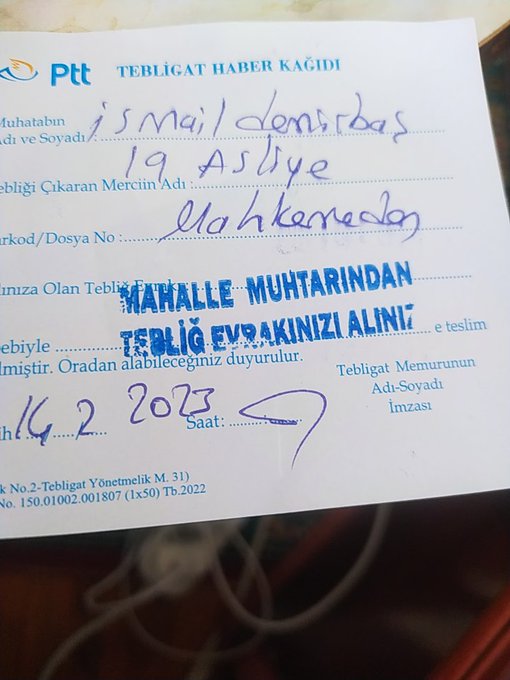 Ptt TEBLİGAT HABER KAĞIDI
Muhatabın
Adı ve Soyadı ismail demirbaş
19 Asliye
ebliği Çıkaran Merciin Adı :
Mahkemeden
arkod/Dosya No :
ınıza Olan Tebliğ Evrakı
MAHALLE MUHTARINDAN
TEBLİĞ EVRAKINIZI ALINIZ
ebiyle e teslim
lmiştir. Oradan alabileceğiniz duyurulur.
Tebligat Memurunun
Adı-Soyadı
İmzası
ih 14.2 2023 Saat:
k No.2-Tebligat Yönetmelik M. 31)
No. 150.01002.001807 (1x50) Tb.2022